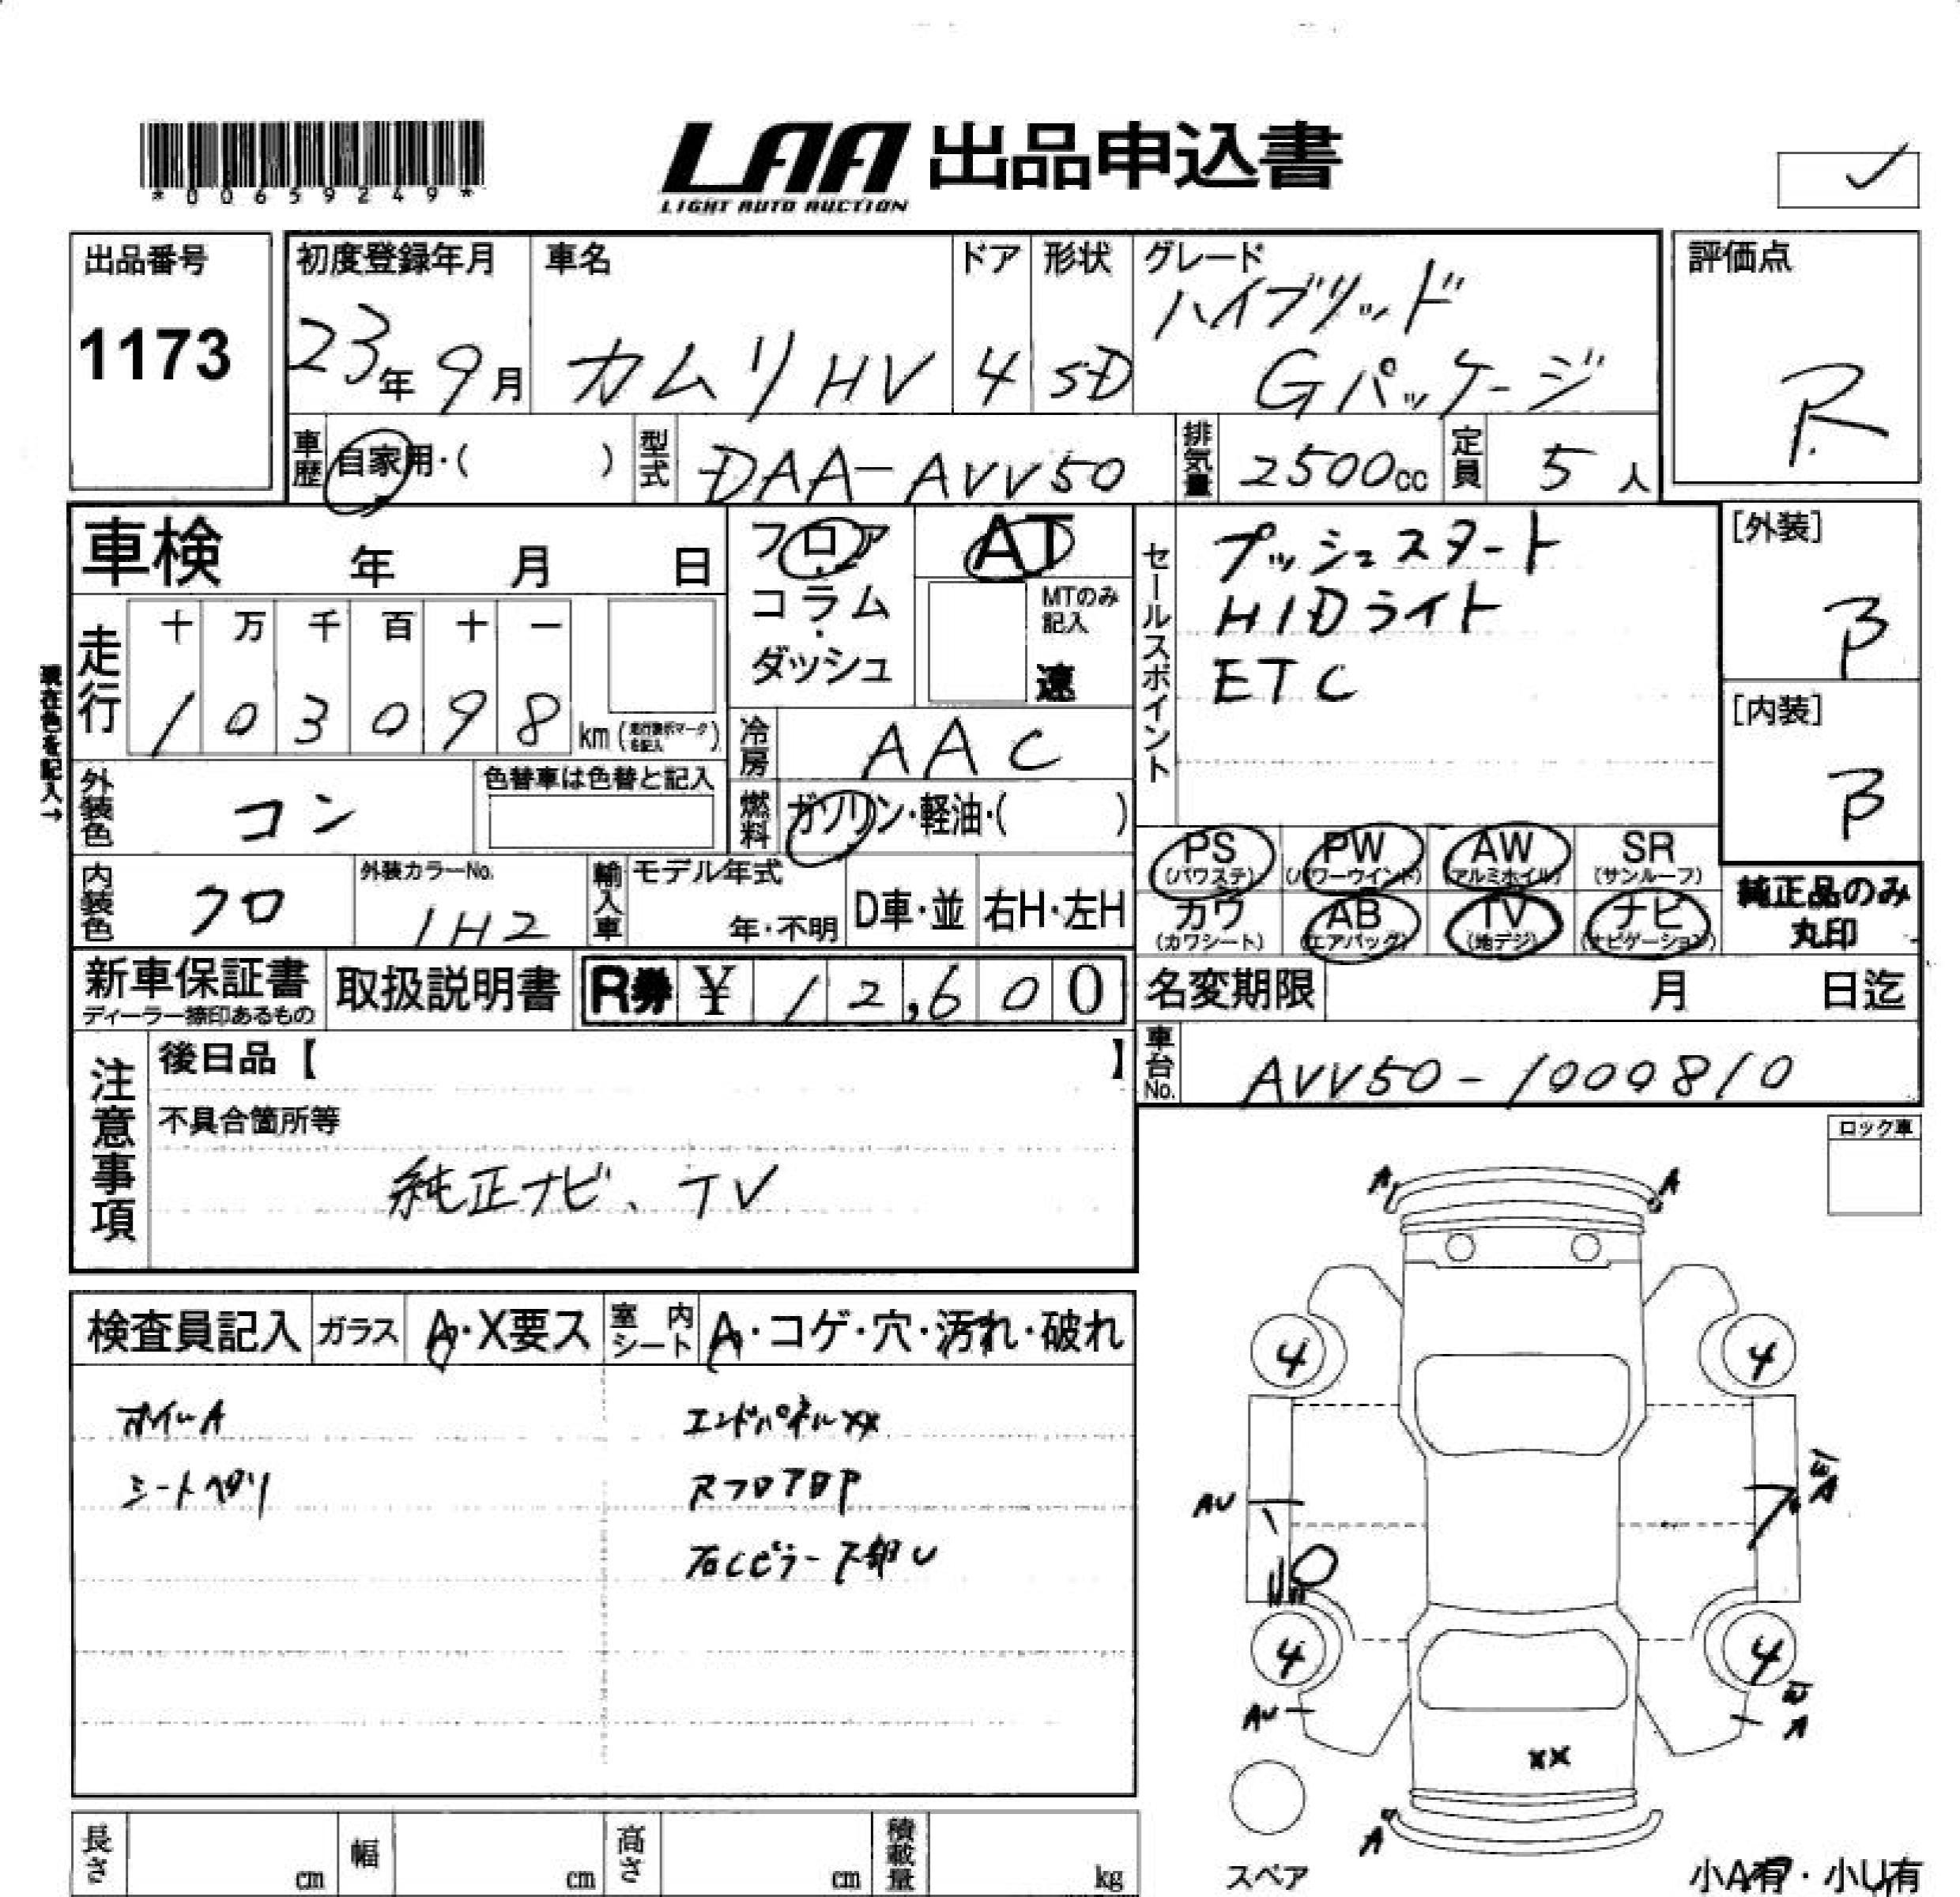 *00659249*
LAA 出品申込書
LIGHT AUTO AUCTION
出品番号
1173
初度登録年月
23年9月
車名
カムリHV
ドア
4
形状
SD
グレード
ハイブリッド
Gパッケージ
評価点
R
車歴
自家用・( )
型式
DAA-AVV50
排気量
2500cc
定員
5人
車検 年 月 日
フロア
コラム
・
ダッシュ
AT
MTのみ
記入
速
セールスポイント
プッシュスタート
HIDライト
ETC
[外装]
B
[内装]
B
現在色を記入→
走行
十 万 千 百 十 一
1 0 3 0 9 8 km
冷房
AAC
外装色
コン
色替車は色替と記入
燃料
ガソリン・軽油・( )
内装色
クロ
外装カラーNo.
1H2
輸入車
モデル年式
年・不明
D車・並
右H・左H
PS
(パワステ)
PW
(パワーウインド)
AW
(アルミホイル)
SR
(サンルーフ)
カワ
(カワシート)
AB
(エアバッグ)
TV
(地デジ)
ナビ
(ナビゲーション)
純正品のみ
丸印
新車保証書
ディーラー捺印あるもの
取扱説明書
R券 ¥ 12,600
名変期限 月 日迄
車台No.
AVV50-1000810
注意事項
後日品【 】
不具合箇所等
純正ナビ、TV
ロック車
検査員記入
ガラス
A・X要ス
室内シート
A・コゲ・穴・汚れ・破れ
ホイルA
シートヘタリ
エンドパネルXX
Rフロア凹P
右Cピラー下部U
A A
4 4
AU
A
4 4
AU
A
XX
A
スペア
小A有・小U有
長さ cm
幅 cm
高さ cm
積載量 kg